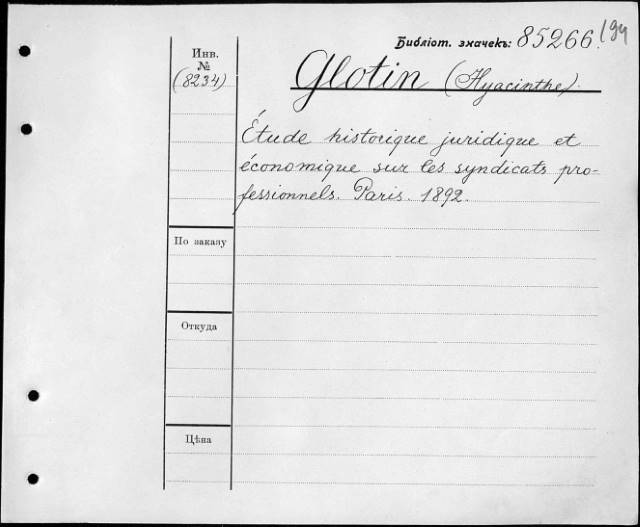 Библіот. значекъ: 85266./94
Инв.
№
(8234)
Glotin (Hyacinthe).
Étude historique juridique et
économique sur les syndicats pro-
fessionnels. Paris. 1892.
По заказу
Откуда
Цѣна